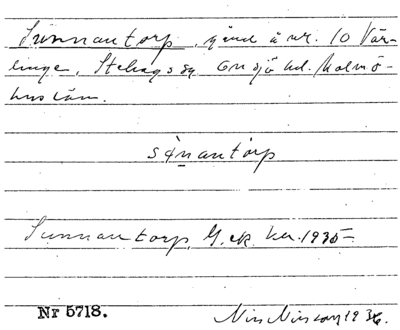 Sunnantorp, gård å nr. 10 Vär-
linge, Stehags sn Onsjö hd. Malmö-
hus län.
sɵ̀nantórp
Sunnantorp, G. ek. ka. 1935
Nr 5718.
Nils Nilsson 1936.